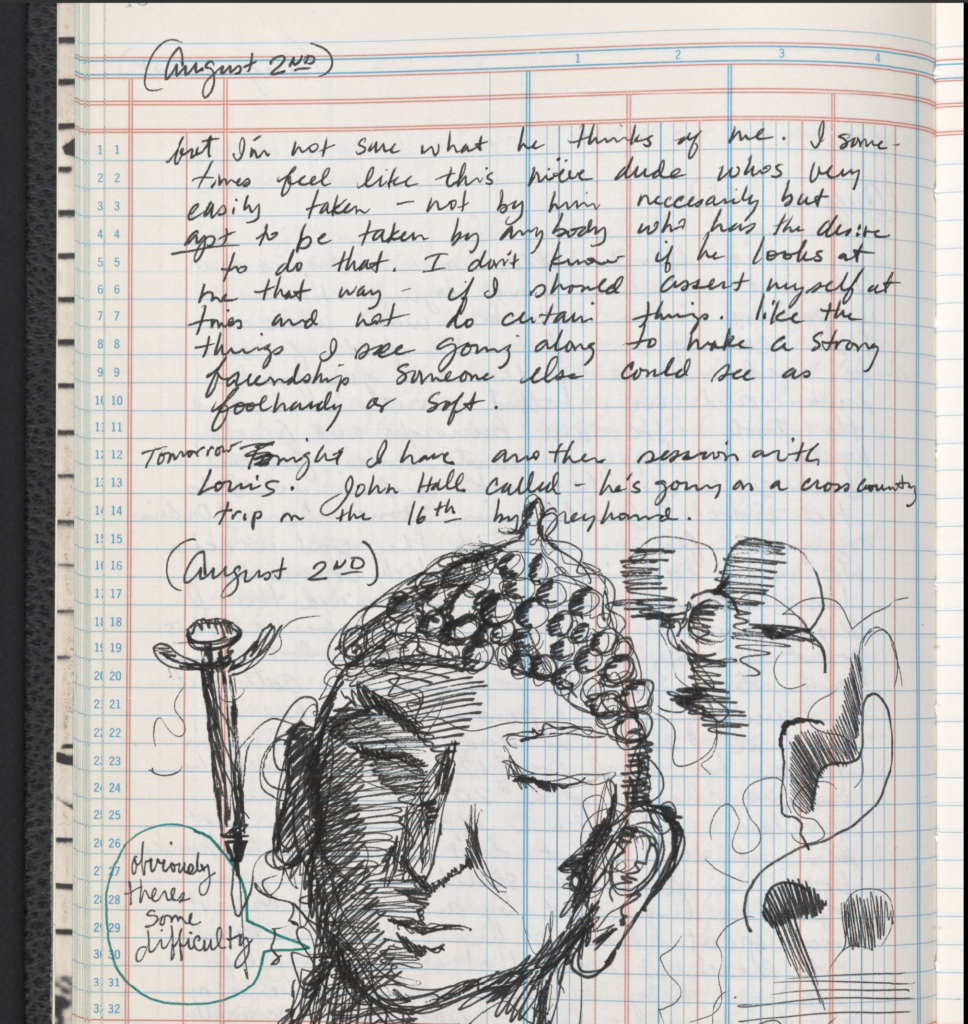 (August 2ND)
1 2 3 4
but I'm not sure what he thinks of me. I some-
times feel like this dude whos very
easily taken – not by him neccesarily but
apt to be taken by anybody who has the desire
to do that. I don't know if he looks at
me that way – if I should assert myself at
times and not do certain things. like the
things I see going along to make a strong
friendship someone else could see as
foolhardy or soft.
Tomorrow night I have another session with
Louis. John Hall called – he's going on a cross county
trip on the 16th by greyhound.
(August 2ND)
obviously
theres
some
difficulty
1 1
2 2
3 3
4 4
5 5
6 6
7 7
8 8
9 9
10 10
11 11
12 12
13 13
14 14
15 15
16 16
17 17
18 18
19 19
20 20
21 21
22 22
23 23
24 24
25 25
26 26
27 27
28 28
29 29
30 30
31 31
32 32